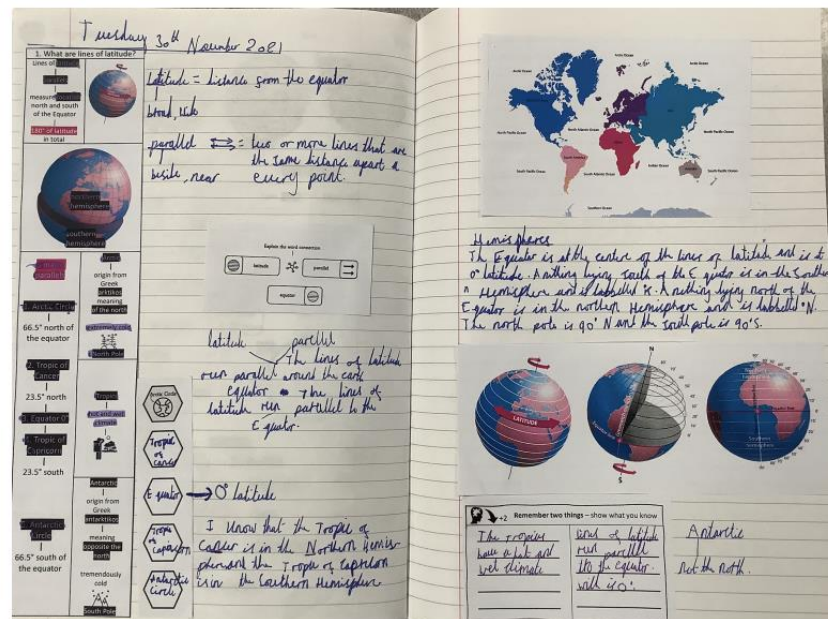 Tuesday 30th November 2021
1. What are lines of latitude?
Lines of
measure
north and south
of the Equator
180° of latitude
in total
northern
hemisphere
southern
hemisphere
Arctic Circle
66.5° north of
the equator
2. Tropic of
Cancer
23.5° north
3. Equator 0°
4. Tropic of
Capricorn
23.5° south
5. Antarctic
Circle
66.5° south of
the equator
origin from
Greek
arktikos
meaning
of the north
extremely cold
North Pole
Tropics
hot and wet
climate
Antarctic
origin from
Greek
antarktikos
meaning
opposite the
north
tremendously
cold
South Pole
Latitude = distance from the equator
broad, side
parallel = two or more lines that are
the same distance apart a
beside, near every point.
Explain the word connection
latitude
parallel
equator
latitude parellel
The lines of latitude
run parallel around the earth
Equator The lines of
latitude run partllel to the
Equator.
Arctic Circle
Tropic
of
Cancer
Equator
0° latitude
Tropic
of
Capricorn
Antarctic
Circle
I know that the Tropic of
Cancer is in the Northern Hemis-
phere and the Tropic of Capricorn
is in the Southern Hemisphere
Arctic Ocean
Arctic Ocean
North Pacific Ocean
North Atlantic Ocean
North Pacific Ocean
South America
Indian Ocean
South Pacific Ocean
South Atlantic Ocean
South Pacific Ocean
Southern Ocean
Hemispheres
The Equator is at the centre of the lines of latitude and is at
0° latitude. Anithing lying south of the Equator is in the Souther
n Hemisphere and is labelled °S. Anithing lying north of the
Equator is in the northen Hemisphere and is labbelled °N.
The north pole is 90° N and the south pole is 90°S.
LATITUDE
N
S
Northern
Hemisphere
Southern
Hemisphere
+2 Remember two things – show what you know
The Tropics
have a hot and
wet climate
lines of latitude
run parellel
to the equator.
wich is 0°.
Antarctic
not the north.